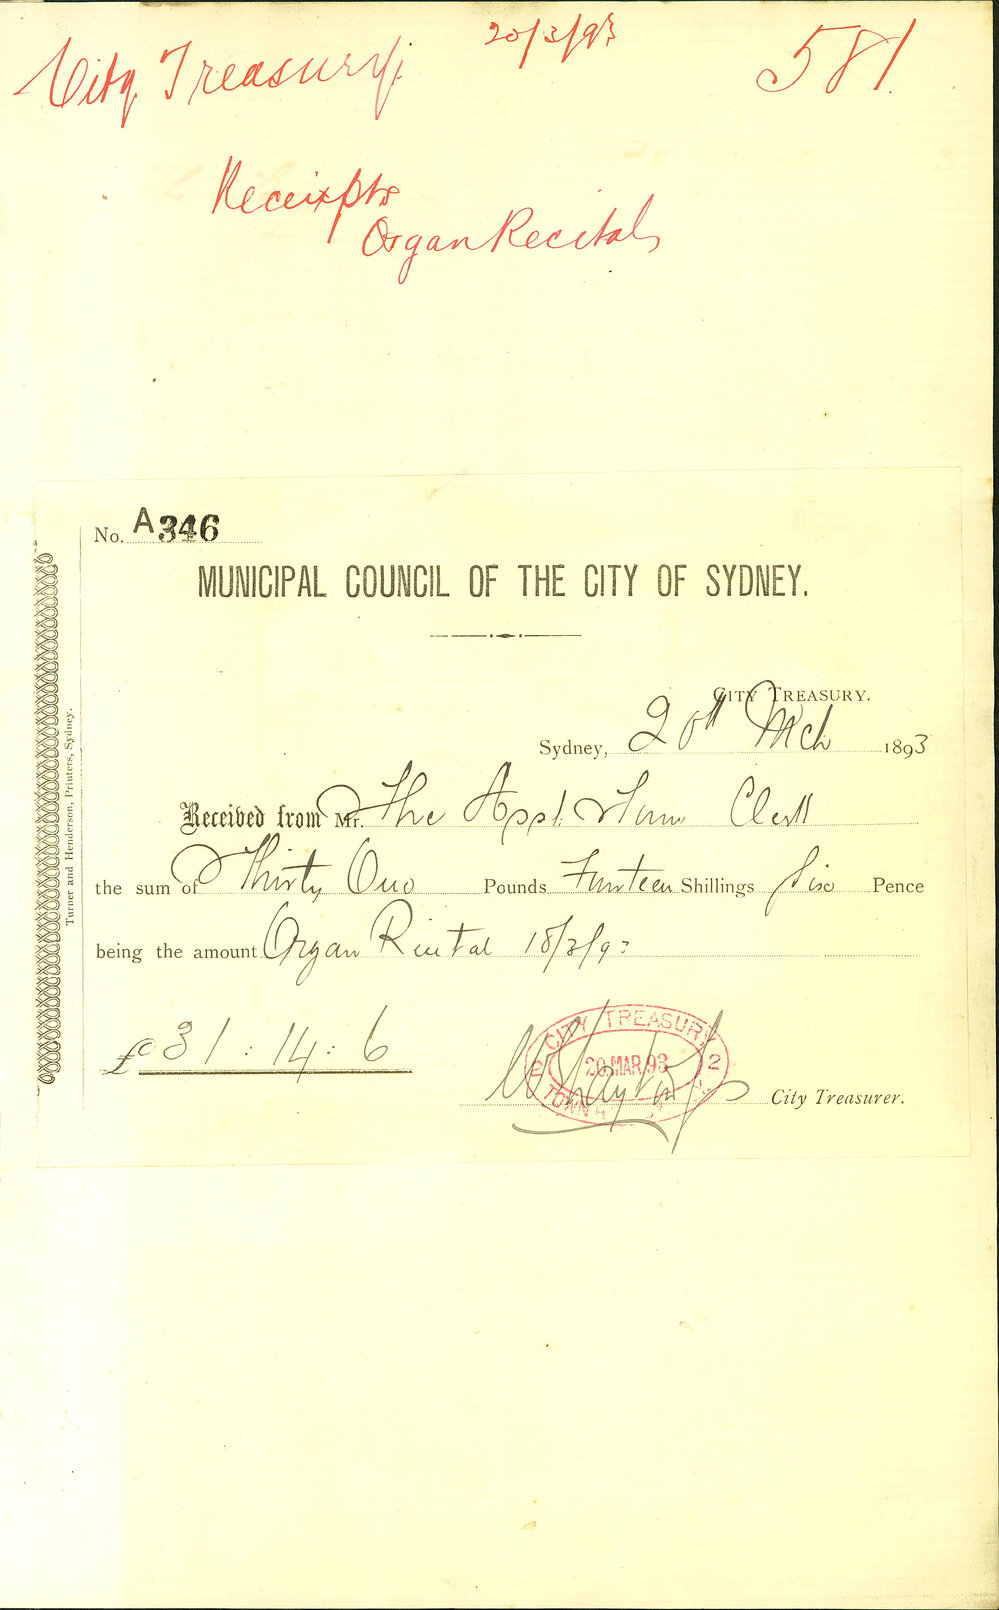 City Treasury. 20/3/93 581.
Receipts
Organ Recitals
No. A346
MUNICIPAL COUNCIL OF THE CITY OF SYDNEY.
CITY TREASURY.
Sydney, 20th Mch 1893
Received from Mr. The Asst. Town Clerk
the sum of Thirty One Pounds Fourteen Shillings Six Pence
being the amount Organ Recital 18/3/93
£31:14:6
CITY TREASURY
2 20 MAR.93 2
TOWN
City Treasurer.
Turner and Henderson, Printers, Sydney.